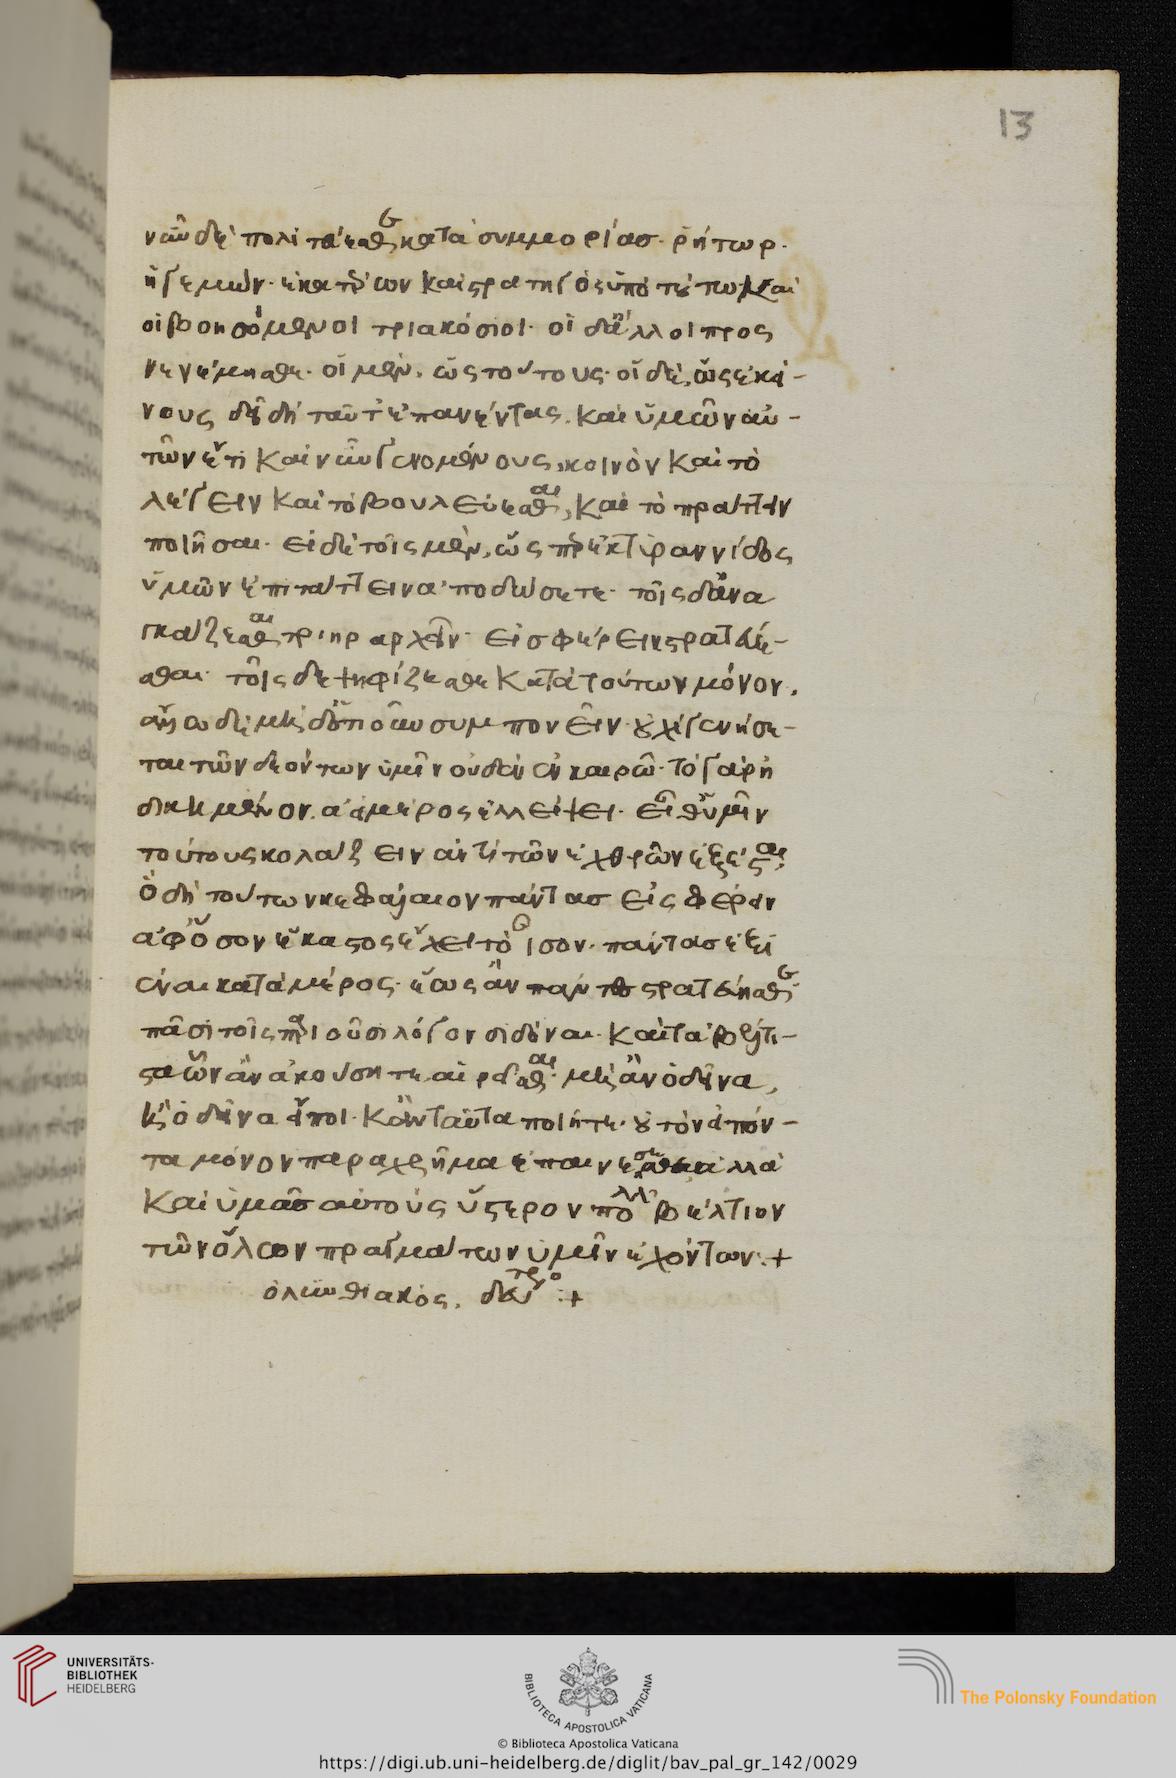 13
νῦν δὲ πολιτεύεσθε κατὰ συμμορίας. ῥήτωρ
ἡγεμὼν ἑκατέρων καὶ στρατηγὸς ὑπὸ τούτῳ καὶ
οἱ βοησόμενοι τριακόσιοι· οἱ δ᾽ ἄλλοι προς
νενέμησθε. οἱ μὲν, ὡς τούτους· οἱ δὲ, ὡς ἐκεί-
νους δεῖ δὴ ταῦτ᾽ ἐπανέντας. καὶ ὑμῶν αὐ-
τῶν ἔτι καὶ νῦν γενομένους, κοινὸν καὶ τὸ
λέγειν καὶ τὸ βουλεύεσθαι, καὶ τὸ πράττειν
ποιῆσαι. εἰ δὲ τοῖς μὲν, ὥσπερ ἐκ τυραννίδος
ὑμῶν ἐπιτάττειν ἀποδώσετε· τοῖς δ᾽ ἀνα
γκάζεσθαι τριηραρχεῖν· εἰσφέρειν στρατεύε-
σθαι· τοῖς δὲ ψηφίζεσθαι κατὰ τούτων μόνον,
ἄλλο δὲ μηδ᾽ ὁτιοῦν συμπονεῖν· οὐχὶ γενήσε-
ται τῶν δεόντων ὑμῖν οὐδὲν ἐν καιρῷ· τὸ γὰρ ἠ
δικημένον ἀεὶ μέρος ἐλλείψει· εἶθ᾽ ὑμῖν
τούτους κολάζειν ἀντὶ τῶν ἐχθρῶν ἐξέσται.
ὁ δὴ τούτων κεφάλαιον πάντας εἰσφέρειν
ἀφ᾽ ὅσον ἕκαστος ἔχει τὸ ἴσον. πάντας ἐξι
έναι κατὰ μέρος. ἕως ἂν πάντες στρατεύησθε.
πᾶσι τοῖς παριοῦσι λόγον διδόναι. καὶ τὰ βέλτι-
στα ὧν ἂν ἀκούσητε, αἱρεῖσθαι. μὴ ἂν ὁ δεῖνα,
ἢ ὁ δεῖνα εἴποι. κἂν ταῦτα ποιῆτε· οὐ τὸν εἰπόν-
τα μόνον παραχρῆμα ἐπαινέσεσθε ἀλλὰ
καὶ ὑμᾶς αὐτοὺς ὕστερον πολλῷ βέλτιον
τῶν ὅλων πραγμάτων ὑμῖν ἐχόντων :+
ὀλυνθιακὸς. δεύτερος :+
UNIVERSITÄTS-
BIBLIOTHEK
HEIDELBERG
BIBLIOTECA APOSTOLICA VATICANA
The Polonsky Foundation
© Biblioteca Apostolica Vaticana
https://digi.ub.uni-heidelberg.de/diglit/bav_pal_gr_142/0029